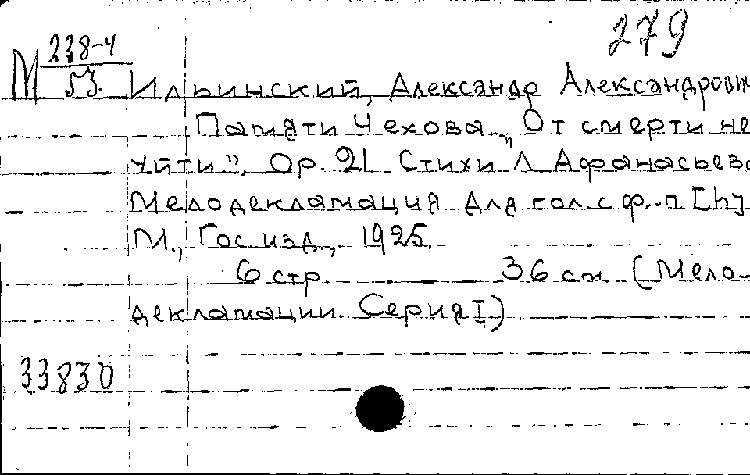 279
М 238-4
53.
Ильинский, Александр Александрович
Памяти Чехова „От смерти не
уйти”. Op. 21 Стихи Л Афанасьева
Мелодекламация для гол. с ф.-п [h]
М., Госизд., 1925
6 стр. 36 см (Мело-
декламации Серия I)
33830